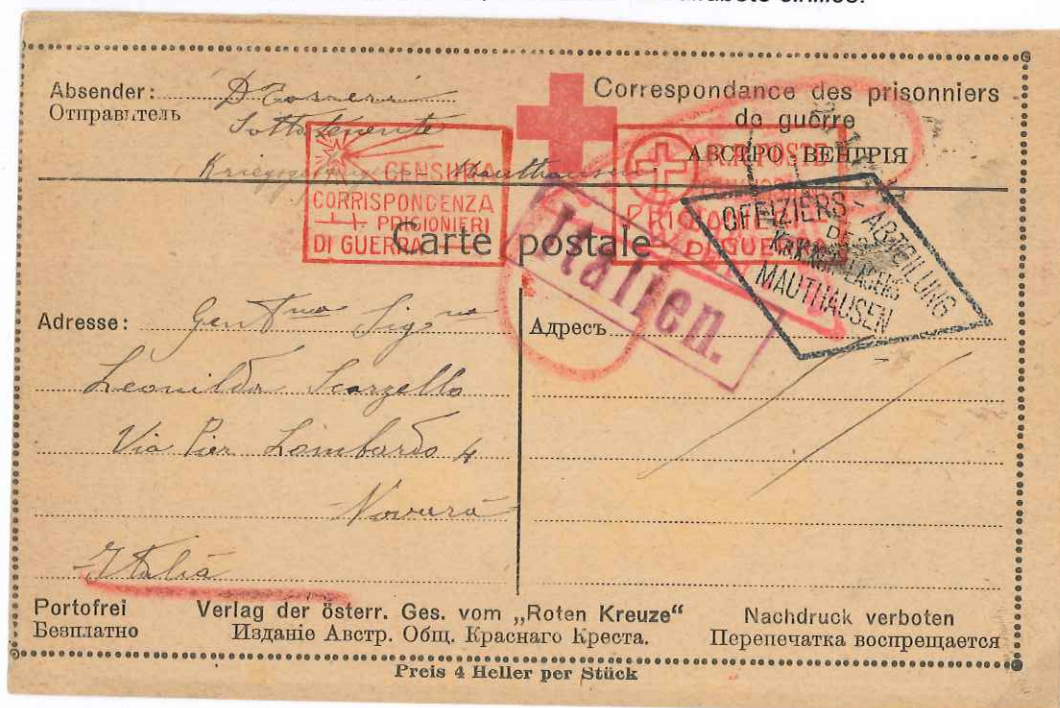 alfabeto cirillico.
Absender:
Отправитель
Sottotenente
Kriegsgefangener Mauthausen
Correspondance des prisonniers
de guerre
АВСТРО-ВЕНГРІЯ
CENSURA
CORRISPONDENZA
PRIGIONIERI
DI GUERRA
POSTE
PRIGIONIERI
DI GUERRA
Carte postale
Italien.
OFFIZIERS-ABTEILUNG
DES
K.u.K.
MAUTHAUSEN
Adresse: Gent.ma Sig.na
Leonilda Scarzello
Via Pier Lombardo 4
Novara
Italia
Адресъ
Portofrei
Безплатно
Verlag der österr. Ges. vom „Roten Kreuze“
Изданіе Австр. Общ. Краснаго Креста.
Nachdruck verboten
Перепечатка воспрещается
Preis 4 Heller per Stück